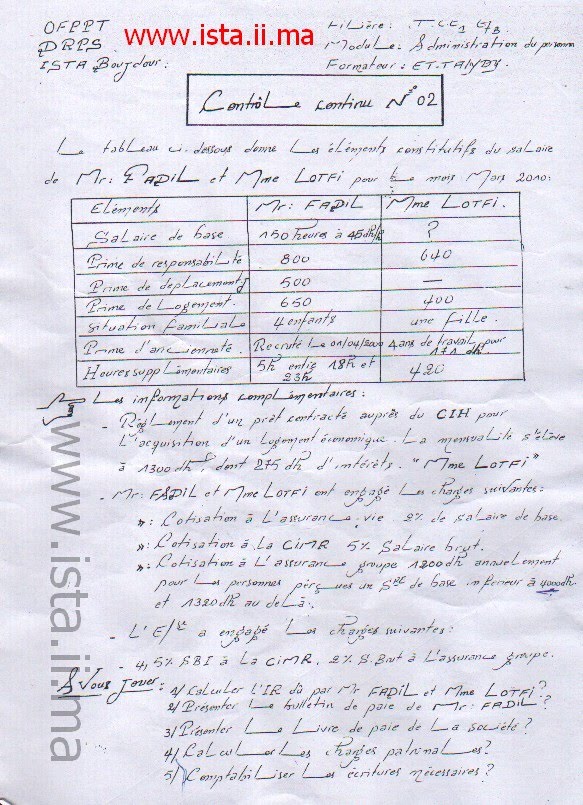 OFPPT www.ista.ii.ma Filière : T.C.E1 E/B
DRPS Module : Administration du personn
ISTA Boujdour : Formateur : ET.TALYDY
Contrôle continu N° 02
Le tableau ci-dessous donne les éléments constitutifs du salaire
de Mr : FADIL et Mme LOTFI pour le mois Mars 2010 :
Eléments Mr : FADIL Mme LOTFI.
Salaire de base 150 heures à 45dh/h ?
Prime de responsabilité 800 640
Prime de déplacements 500 —
Prime de Logement. 650 400
Situation familiale 4 enfants une fille.
Prime d'ancienneté. Recruté le 01/04/2000 4 ans de travail pour 171 dh
Heures supplémentaires 5h entre 18h et 23h 420
Les informations complémentaires :
- Règlement d'un prêt contracté auprès du CIH pour
L'acquisition d'un Logement économique. La mensualité s'élève
à 1300 dh, dont 275 dh d'intérêts. "Mme LOTFI"
- Mr : FADIL et Mme LOTFI ont engagé Les charges suivantes :
» : Cotisation à L'assurance vie 2% de salaire de base.
» : Cotisation à La CIMR 5% Salaire brut.
» : Cotisation à L'assurance groupe 1200dh annuelement
pour les personnes perçues un Sre de base inferieur à 4000dh
et 1320dh au delà.
- L'E/se a engagé Les charges suivantes :
- 4,5% SBI à La CIMR. 2% S.Brut à L'assurance groupe.
A Vous jouer : 1/ Calculer L'IR dû par Mr FADIL et Mme LOTFI ?
2/ Présenter Le bulletin de paie de Mr : FADIL ?
3/ Présenter Le Livre de paie de La société ?
4/ Calculer Les charges patronales ?
5/ Comptabiliser Les écritures nécessaires ?
www.ista.ii.ma